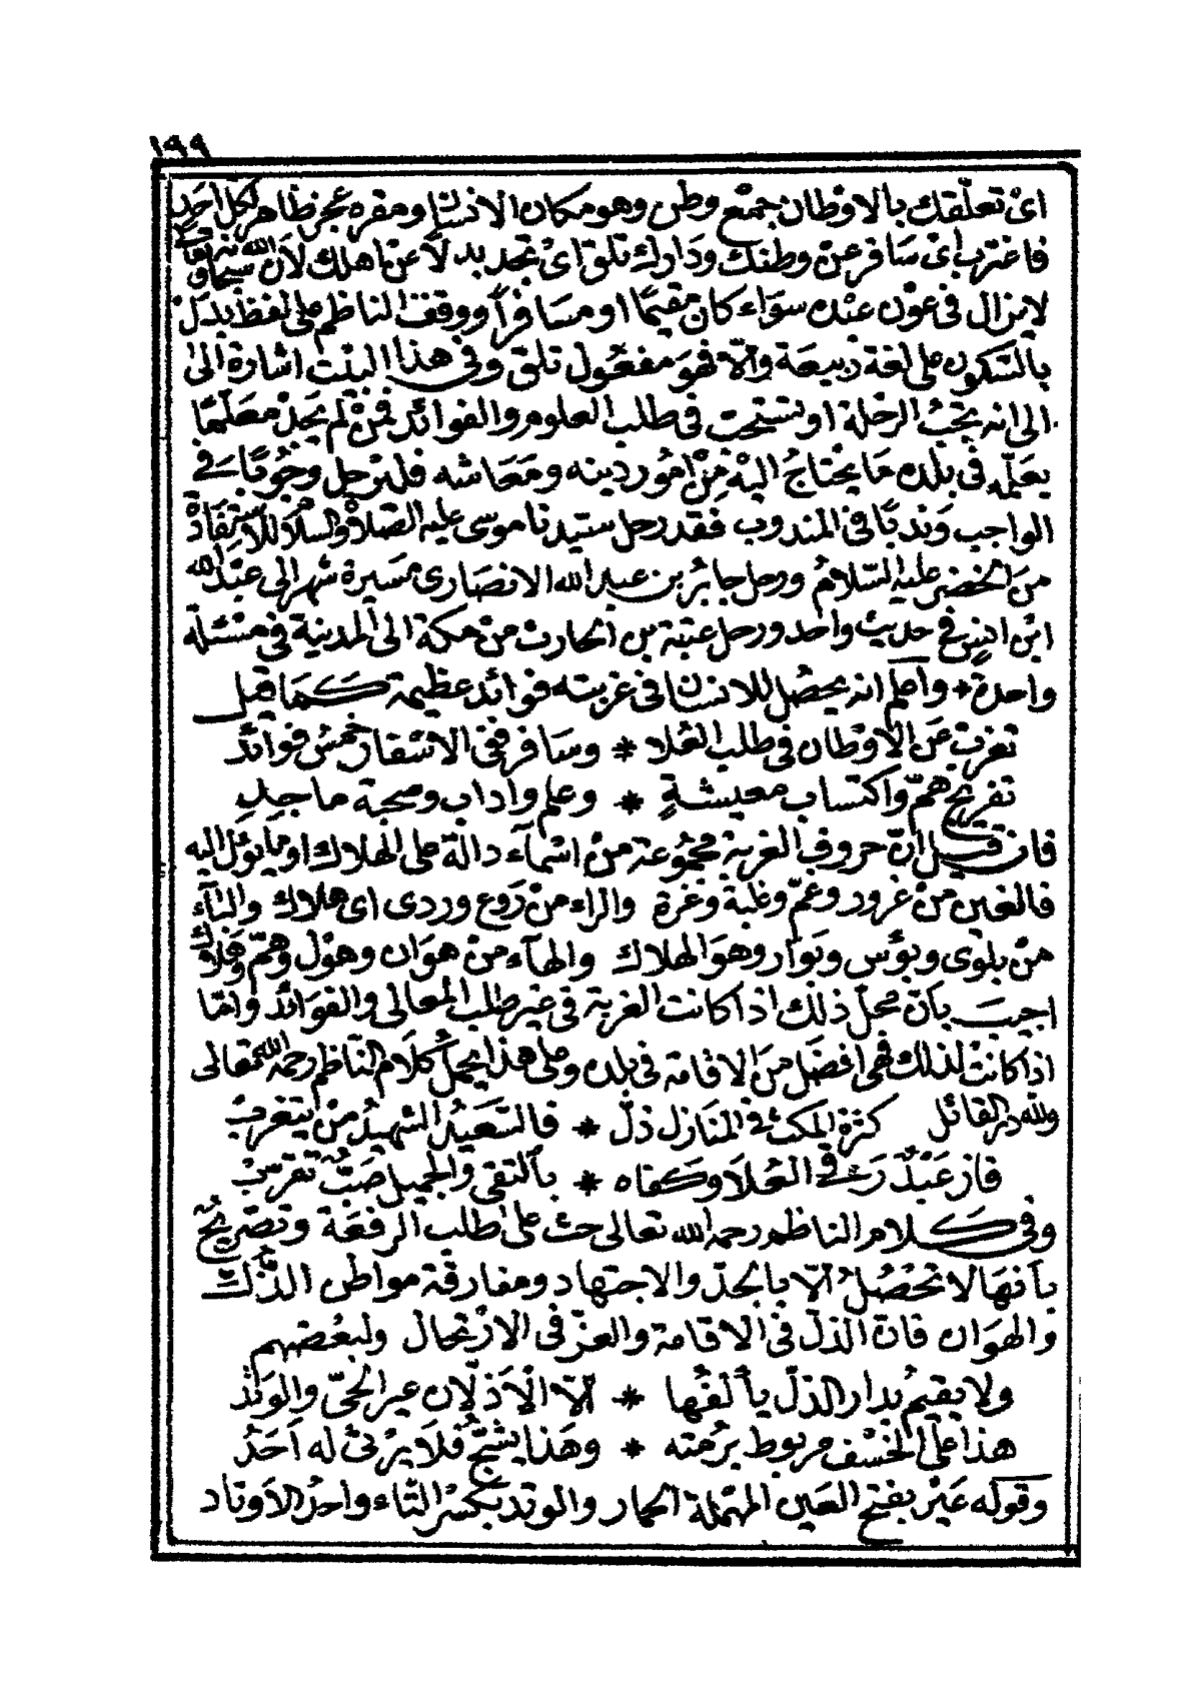 ١٩٩
اى تعلقك بالاوطان جمع وطن وهو مكان الانسان ومقره عجز ظاهر لكل احد
فاغترب اى سافر عن وطنك ودارك تلق اى تجد بدلا عن اهلك لان الله سبحانه وتعالى
لا يزال فى عون عبده سواء كان مقيما او مسافرا ووقف الناظم على لفظ بدل
بالسكون على لغة ربيعة والا فهو مفعول تلق وفى هذا البيت اشارة الى
الى انه يجب الرحلة او تستحب فى طلب العلوم والفوائد فمن لم يجد معلما
يعلمه فى بلده ما يحتاج اليه من امور دينه ومعاشه فليرحل وجوبا فى
الواجب وندبا فى المندوب فقد رحل سيدنا موسى عليه الصلاة والسلام للاستفادة
من الخضر عليه السلام ورحل جابر بن عبد الله الانصارى مسيرة شهر الى عبد الله
ابن انيس فى حديث واحد ورحل عتبة بن الحارث من مكة الى المدينة فى مسئلة
واحدة * واعلم انه يحصل للانسان فى غربته فوائد عظيمة كما قيل
تغرب عن الاوطان فى طلب العلا * وسافر ففى الاسفار خمس فوائد
تفريج هم واكتساب معيشة * وعلم واداب وصحبة ماجد
فان قيل ان حروف الغربة مجموعة من اسماء دالة على الهلاك او ما يؤل اليه
فالغين من غرور وغم وغلبة وغرة والراء من روع وردى اى هلاك والباء
من بلوى وبؤس وبوار وهو الهلاك والهاء من هوان وهول وهم وهلاك
اجيب بان محل ذلك اذا كانت الغربة فى غير طلب المعالى والفوائد واما
اذا كانت لذلك فهى افضل من الاقامة فى بلده وعلى هذا يحمل كلام الناظم رحمه الله تعالى
ولله در القائل كثرة المكث فى المنازل ذل * فالسعيد الشهيد من يتغرب
فاز عبد رقى العلا وكفاه * بالتقى والجميل صب تغرب
وفى كلام الناظم رحمه الله تعالى حث على طلب الرفعة وتصريح
بانها لا تحصل الا بالجد والاجتهاد ومفارقة مواطن الذل
والهوان فان الذل فى الاقامة والعز فى الارتحال ولبعضهم
ولا يقيم بدار الذل يألفها * الا الاذلان عير الحى والوتد
هذا على الخسف مربوط برمته * وهذا يشج فلا يرثى له احد
وقوله عير بفتح العين المهملة الحمار والوتد بكسر التاء واحد الاوتاد